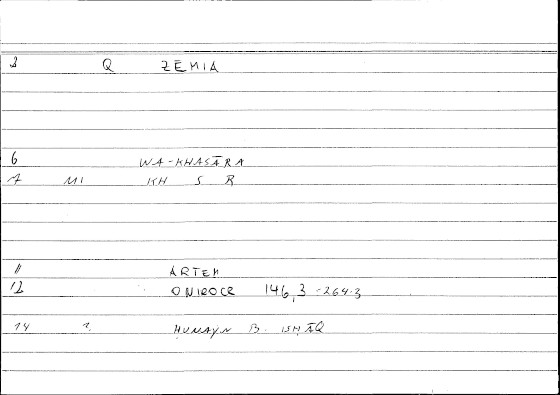 3 Q ZĒMIA
6 WA-KHASĀRA
7 MI KH S R
11 ARTEM
12 ONIROCR 146,3-264.3
14 2. HUNAYN B. ISHĀQ